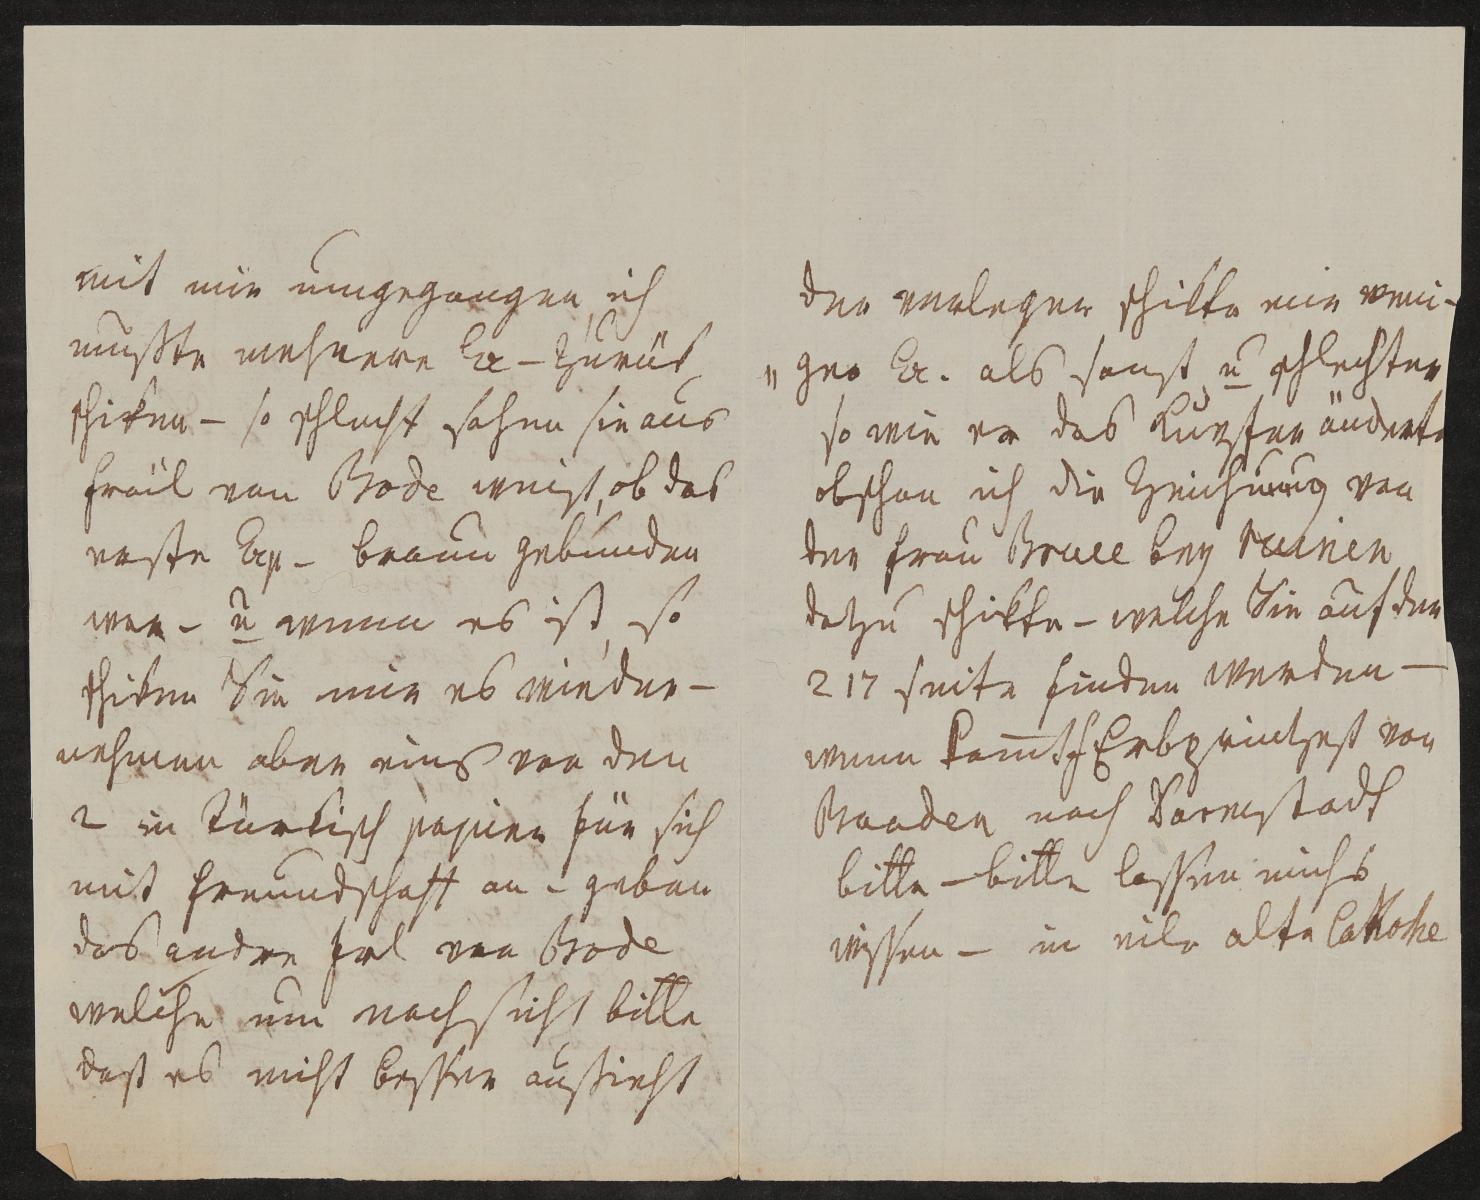 mit mir umgegangen, ich
mußte mehrere Ex – Zurük
schiken – so schlecht sahen sie aus
fräul von Bode weißt, ob das
erste Exp – braun gebunden
war – u wenn es ist, so
schiken Sie mir es wieder –
nehmen aber eins von den
2 in Türkisch papier für sich
mit freundschaft an – geben
das andre frl von Bode
welche um nachsicht bitte
daß es nicht besser außsieht
der verleger schikte mir weni-
" ger Ex. als sonst, u schlechter
so wie er das Kupfer änderte
obschon ich die Zeichnung von
der frau Bruce bey ruinen
dazu schikte – welche Sie auf der
217 seite finden werden –
wenn kommt Erbprintzeß von
Baaden nach Darmstadt
bitte – bitte lassen michs
wissen – in eile alte LaRoche